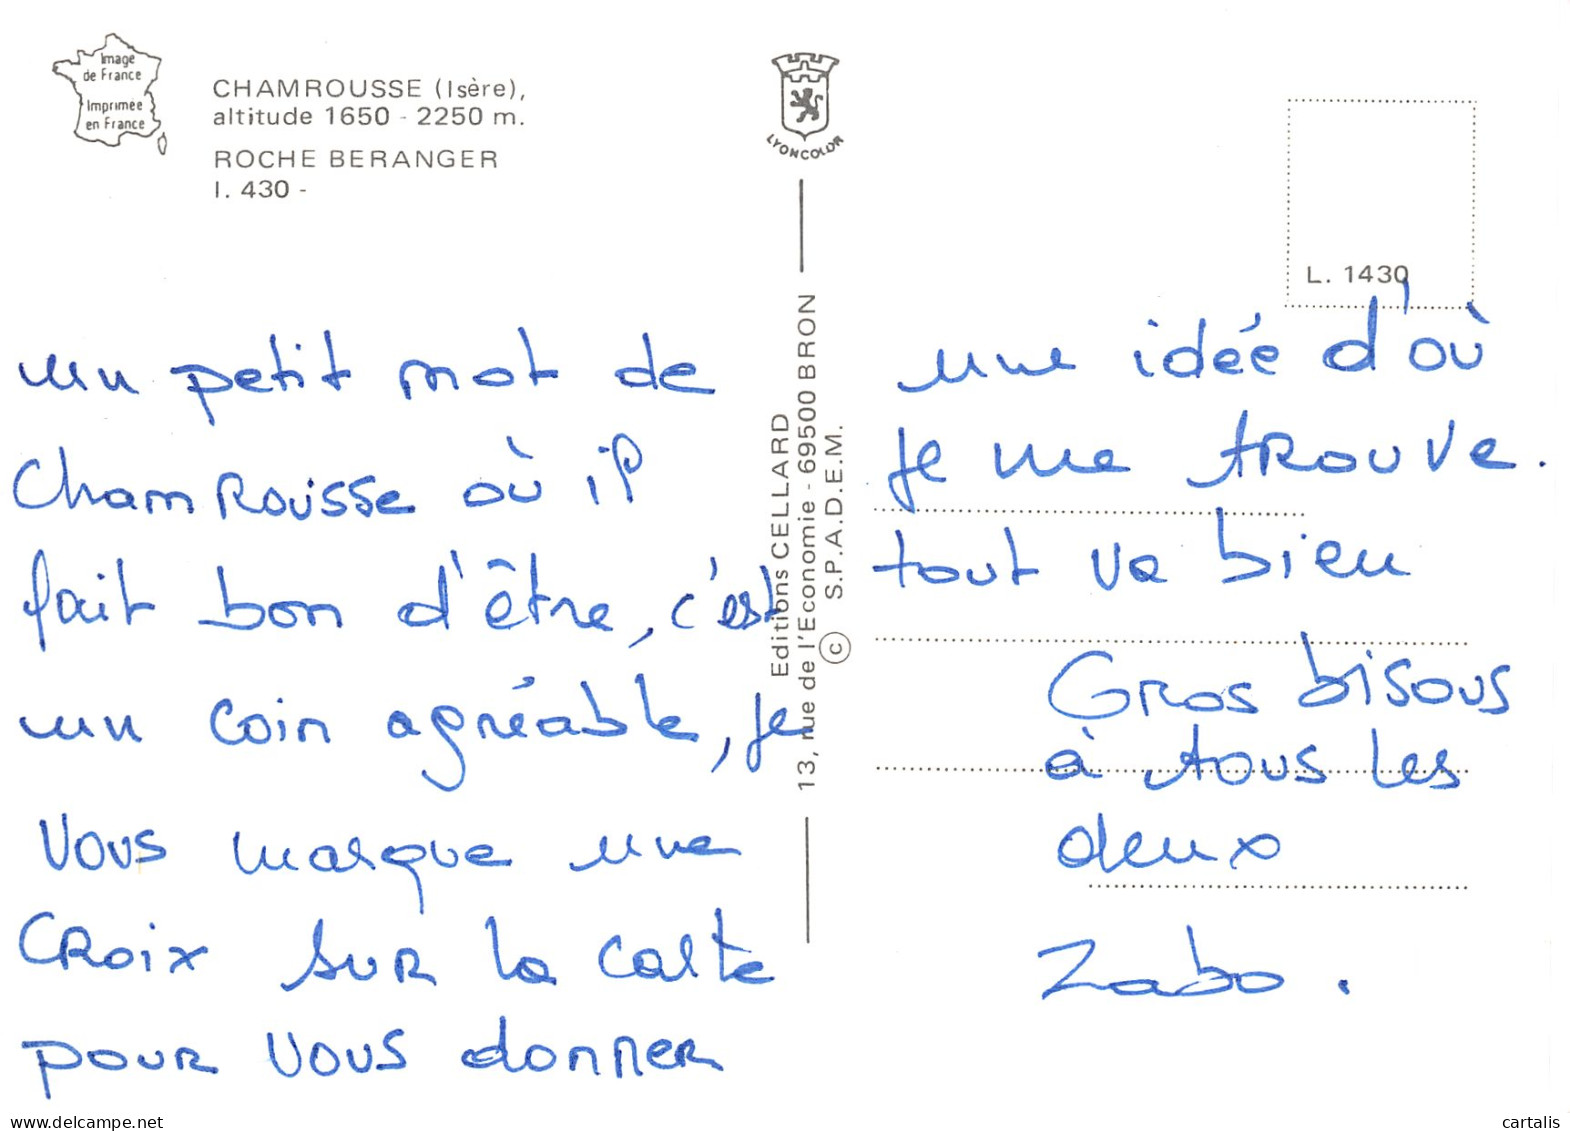 Image
de France
Imprimée
en France
CHAMROUSSE (Isère),
altitude 1650 - 2250 m.
ROCHE BERANGER
I. 430 -
LYONCOLOR
Editions CELLARD
13, rue de l'Economie - 69500 BRON
S.P.A.D.E.M.
©
L. 1430
un petit mot de
Chamrousse où il
fait bon d'être, c'est
un coin agréable, je
vous marque une
croix sur la carte
pour vous donner
une idée d'où
je me trouve.
tout va bien
Gros bisous
à tous les
deux
Zabo.
cartalis